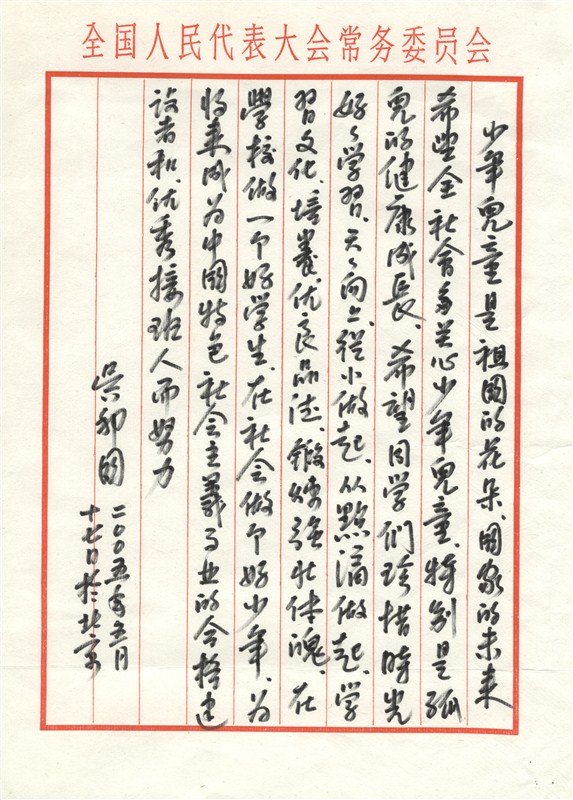 全国人民代表大会常务委员会
少年兒童是祖國的花朵、國家的未来
希望全社會多关心少年兒童、特别是孤
兒的健康成長、希望同学們珍惜時光
好〻学習、天〻向上、從小做起、从點滴做起、学
習文化、培養优良品德、鍛煉强壮体魄、在
學校做一个好学生、在社会做个好少年、为
将来成为中國特色社会主義事业的合格建
设者和优秀接班人而努力
吴邦國
二〇〇五年五月
十七日於北京